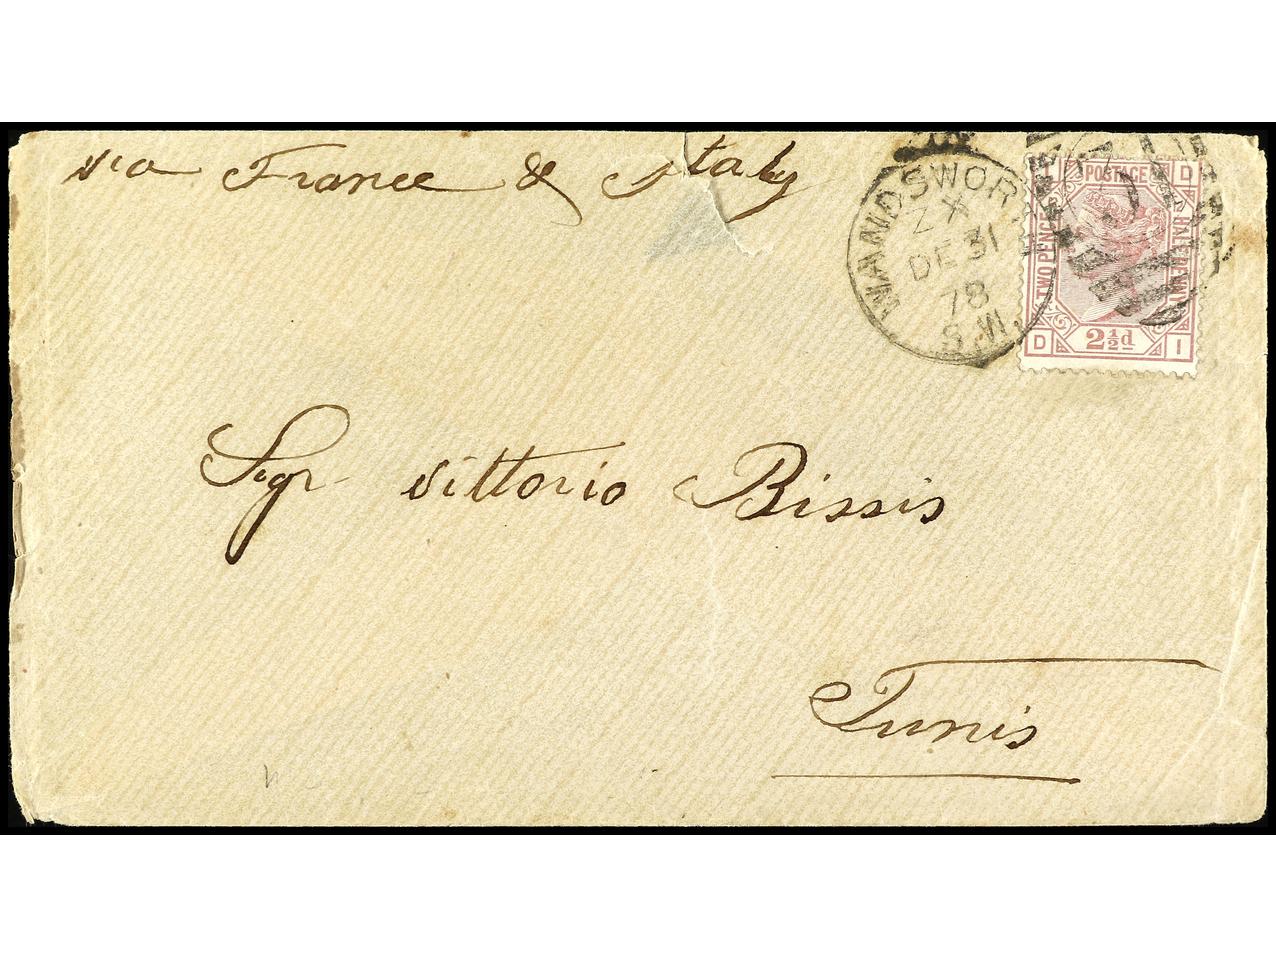 via France & Italy
ZX
DE 31
78
S.W.
POSTAGE
D
TWO PENCE
HALFPENNY
D 2½d I
Sigr. Vittorio Bissis
Tunis